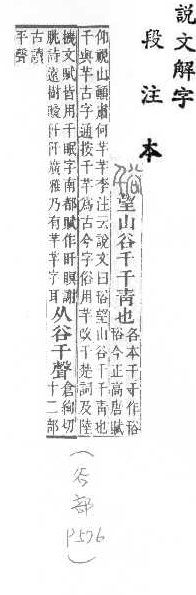 說文解字
段注本
望山谷千千青也
各本千千作谸
谸今正高唐賦
仰視山顛肅何芊芊李注云說文曰谸望山谷千千青也
千與芊古字通按千芊爲古今字俗用芊改千楚詞及陸
機文賦皆用千眠字南都賦作盰瞑謝
朓詩遠樹曖仟仟廣雅乃有芊芊字耳
从谷千聲
倉絢切
十二部
古讀
平聲
(谷部 P576)